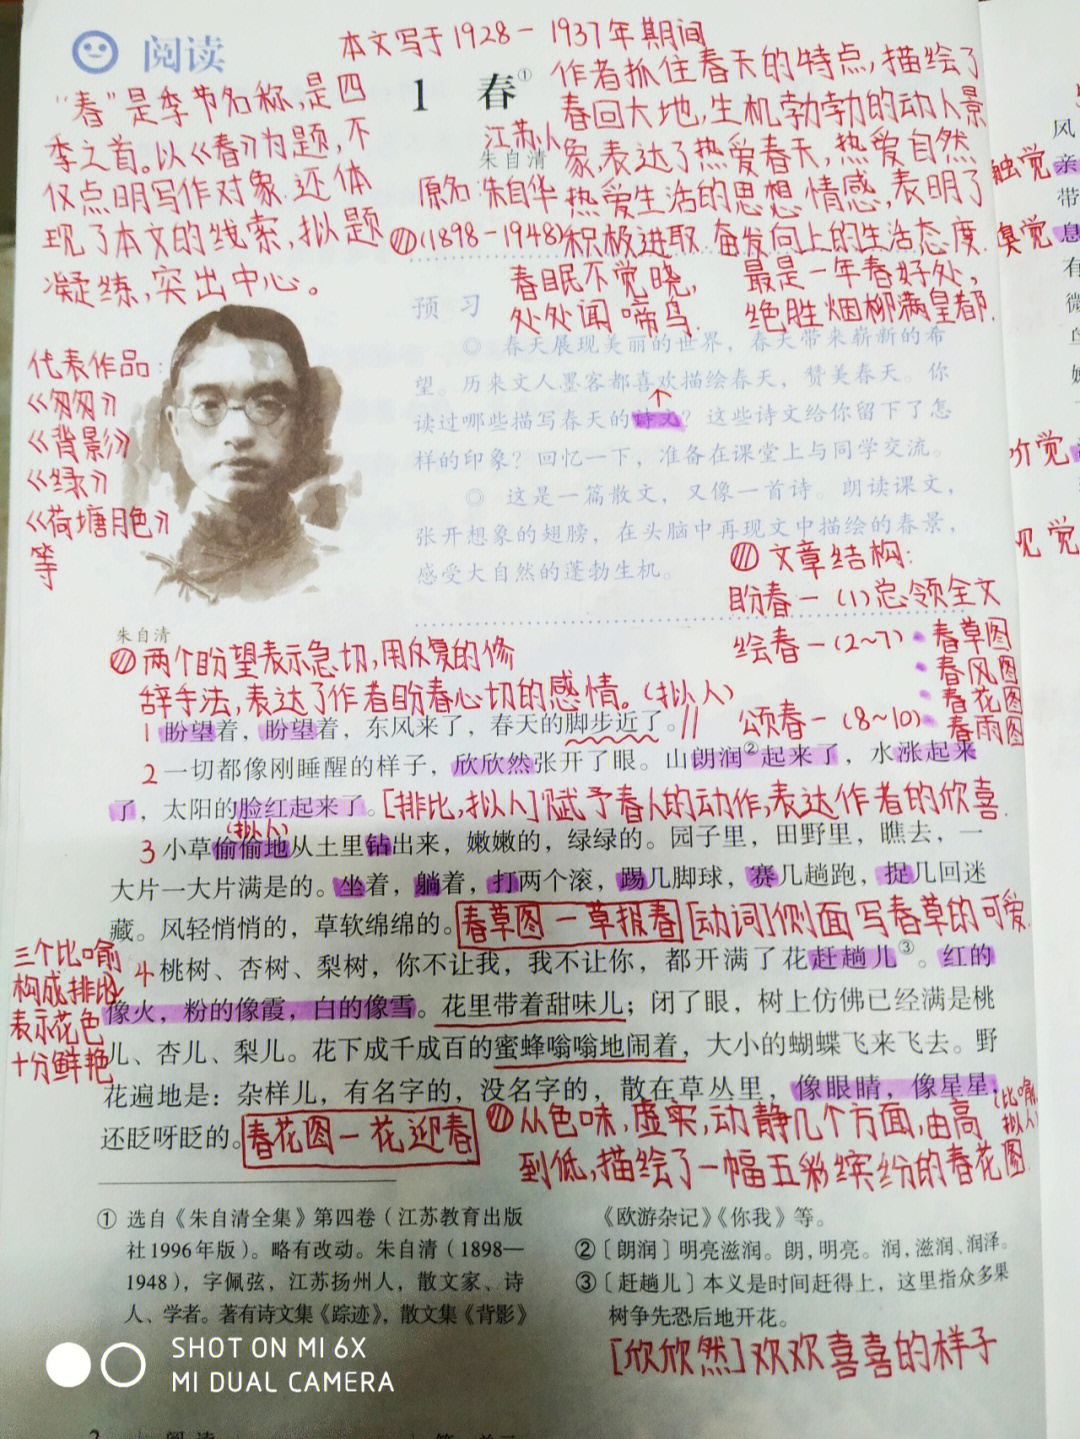 阅读
本文写于1928-1937年期间
1 春①
朱自清
江苏人
原名:朱自华
(1898-1948)
"春"是季节名称,是四
季之首。以《春》为题,不
仅点明写作对象.还体
现了本文的线索,拟题
凝练,突出中心。
作者抓住春天的特点,描绘了
春回大地,生机勃勃的动人景
象,表达了热爱春天,热爱自然
热爱生活的思想情感,表明了
积极进取 奋发向上的生活态度.
春眠不觉晓,
处处闻啼鸟.
最是一年春好处,
绝胜烟柳满皇都.
代表作品:
《匆匆》
《背影》
《绿》
《荷塘月色》
等
朱自清
预习
◎ 春天展现美丽的世界,春天带来崭新的希
望。历来文人墨客都喜欢描绘春天,赞美春天。你
读过哪些描写春天的诗文?这些诗文给你留下了怎
样的印象?回忆一下,准备在课堂上与同学交流。
◎ 这是一篇散文,又像一首诗。朗读课文,
张开想象的翅膀,在头脑中再现文中描绘的春景,
感受大自然的蓬勃生机。
文章结构:
盼春一(1)总领全文
绘春一(2~7)
春草图
春风图
春花图
春雨图
颂春一(8~10)
两个盼望表示急切,用反复的修
辞手法,表达了作者盼春心切的感情。(拟人)
1 盼望着,盼望着,东风来了,春天的脚步近了。//
2 一切都像刚睡醒的样子,欣欣然张开了眼。山朗润②起来了,水涨起来
了,太阳的脸红起来了。[排比,拟人]赋予春人的动作,表达作者的欣喜.
(拟人)
3 小草偷偷地从土里钻出来,嫩嫩的,绿绿的。园子里,田野里,瞧去,一
大片一大片满是的。坐着,躺着,打两个滚,踢几脚球,赛几趟跑,捉几回迷
藏。风轻悄悄的,草软绵绵的。春草图一草报春 [动词]侧面写春草的可爱.
三个比喻
构成排比
表示花色
十分鲜艳
4 桃树、杏树、梨树,你不让我,我不让你,都开满了花赶趟儿③。红的
像火,粉的像霞,白的像雪。花里带着甜味儿;闭了眼,树上仿佛已经满是桃
儿、杏儿、梨儿。花下成千成百的蜜蜂嗡嗡地闹着,大小的蝴蝶飞来飞去。野
花遍地是:杂样儿,有名字的,没名字的,散在草丛里,像眼睛,像星星,
还眨呀眨的。春花图一花迎春
(比喻,
拟人)
从色味,虚实,动静几个方面,由高
到低,描绘了一幅五彩缤纷的春花图.
① 选自《朱自清全集》第四卷(江苏教育出版
社1996年版)。略有改动。朱自清(1898—
1948),字佩弦,江苏扬州人,散文家、诗
人、学者。著有诗文集《踪迹》,散文集《背影》
《欧游杂记》《你我》等。
②〔朗润〕明亮滋润。朗,明亮。润,滋润、润泽。
③〔赶趟儿〕本义是时间赶得上,这里指众多果
树争先恐后地开花。
[欣欣然]欢欢喜喜的样子
SHOT ON MI 6X
MI DUAL CAMERA
2 阅读
风
触觉 亲
带
臭觉 息
有
微
觉
觉